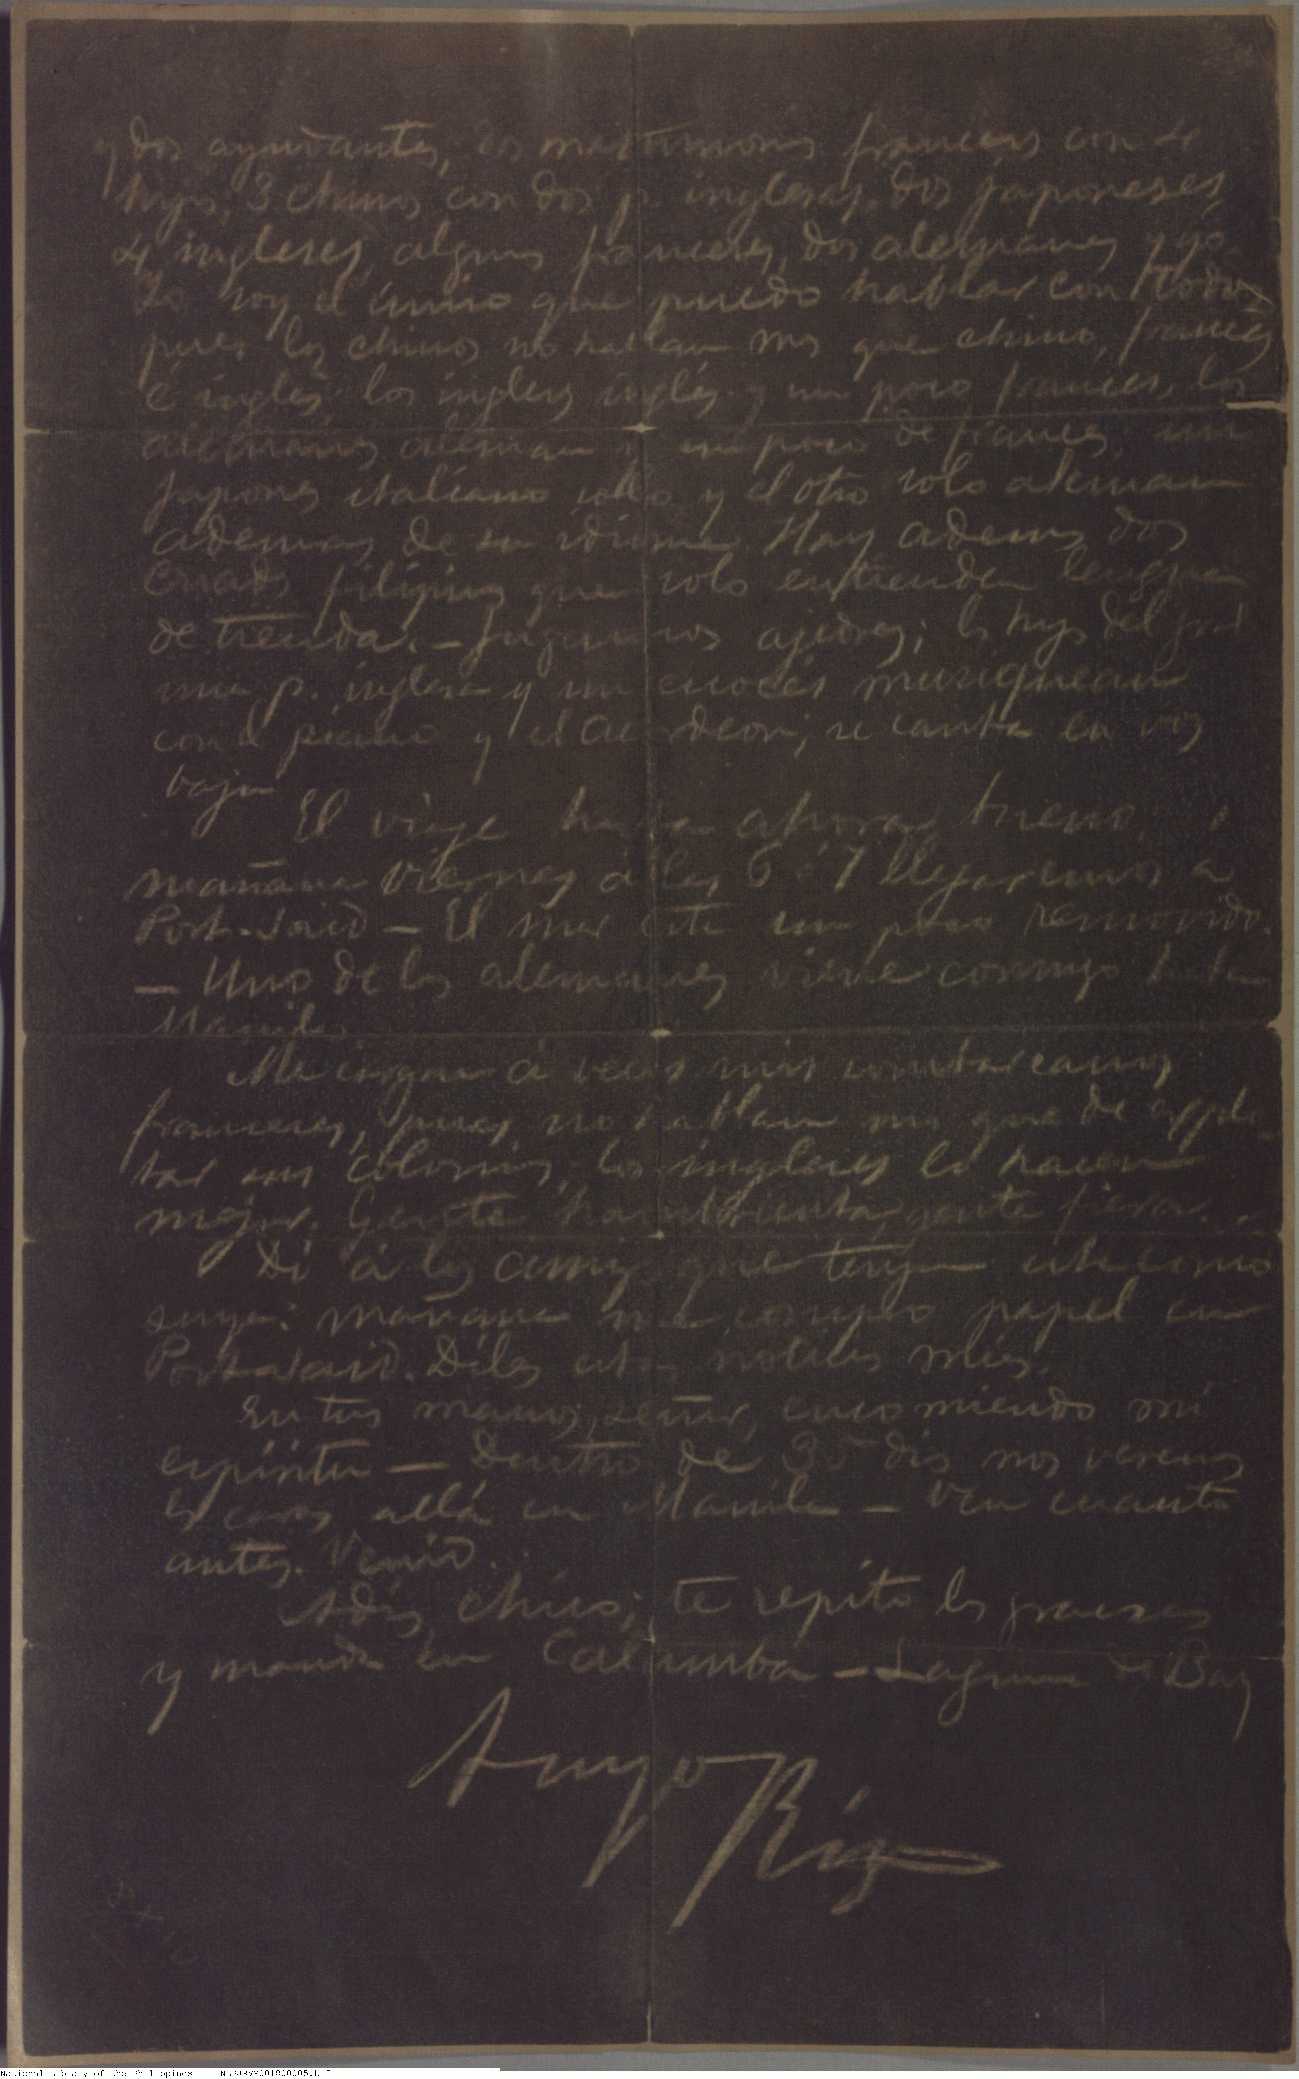 y dos ayudantes, dos matrimonios franceses con 4
hijos, 3 chinos con dos p. inglesas, dos japoneses,
4 ingleses, algunos franceses, dos alemanes y yo.
Yo soy el único que puedo hablar con todos
pues los chinos no hablan mas que chino, francés
é inglés, los ingleses inglés y un poco francés, los
alemanes aleman y un poco de francés, un
japones italiano solo y el otro solo aleman
ademas de su idioma. Hay ademas dos
criados filipinos que solo entienden lengua
de tienda. — Jugamos ajedrez; los hijos del
una p. inglesa y un escocés musiquean
con el piano y el acordeon; se canta en voz
baja
El viaje hasta ahora bueno,
mañana Viernes á las 6 ó 7 llegaremos a
Port-Said — El mar está un poco removido.
— Uno de los alemanes viene conmigo hasta
Manila
Me cargan á veces mis
franceses, pues no hablan mas que de explo-
tar sus colonias, los ingleses lo hacen
mejor. Gente hambrienta, gente fiera.
Di á los amigos que tengan esta como
suya: mañana me compro papel en
Port-Said. Diles estas noticias mias.
En tus manos, señor, encomiendo mi
espíritu — Dentro de 30 dias nos veremos
las caras allá en Manila — Ven cuanto
antes. Venid.
Adios, chico; te repito las gracias
y manda en Calamba — Laguna de Bay
Tuyo Rizal
National Library of the Philippines